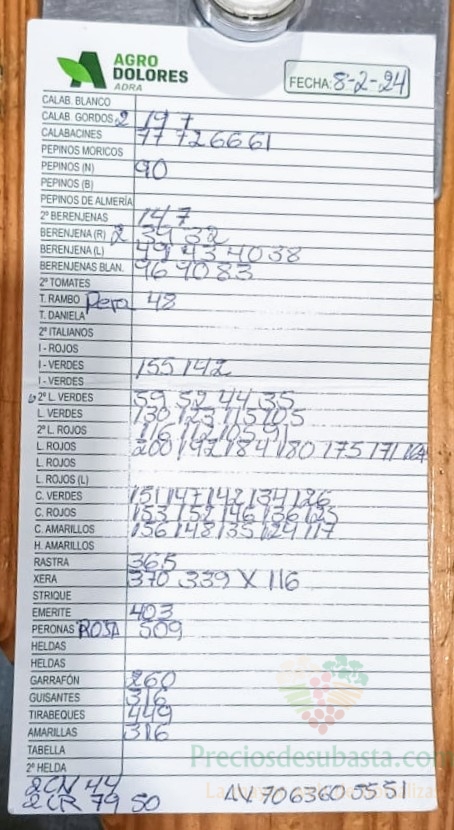 AGRO
DOLORES
ADRA
FECHA: 8-2-24
CALAB. BLANCO
CALAB. GORDOS 2 19 7
CALABACINES 77 72 66 61
PEPINOS MORICOS
PEPINOS (N) 90
PEPINOS (B)
PEPINOS DE ALMERÍA
2º BERENJENAS 14 7
BERENJENA (R) 2 39 32
BERENJENA (L) 49 43 40 38
BERENJENAS BLAN. 96 90 83
2º TOMATES
T. RAMBO Pera 48
T. DANIELA
2º ITALIANOS
I - ROJOS
I - VERDES 155 142
I - VERDES
2º L. VERDES 59 52 44 35
L. VERDES 130 123 115 105
2º L. ROJOS 116 112 105 91
L. ROJOS 200 192 184 180 175 171 164
L. ROJOS
L. ROJOS (L)
C. VERDES 151 147 142 134 126
C. ROJOS 153 152 146 136 125
C. AMARILLOS 156 148 135 124 117
H. AMARILLOS
RASTRA 365
XERA 370 339 X 116
STRIQUE
EMERITE 403
PERONAS ROJA 509
HELDAS
HELDAS
GARRAFÓN 260
GUISANTES 316
TIRABEQUES 449
AMARILLAS 316
TABELLA
Preciosdesubasta.com
2º HELDA
2 CN 44
2 CR 79 50 LV 70 63 60 55 51